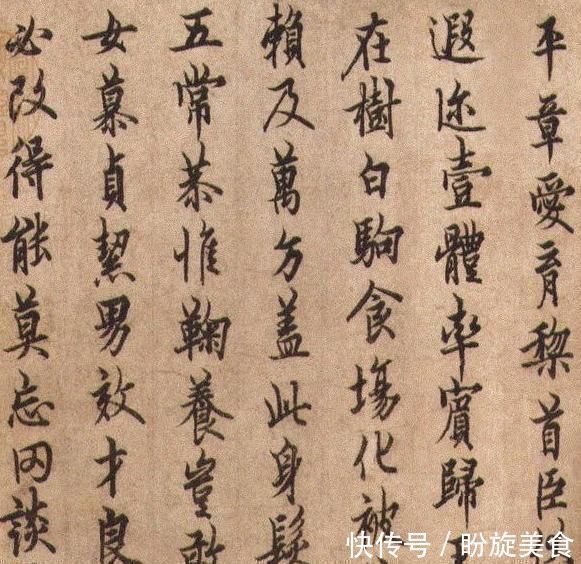 平章愛育黎首臣
遐迩壹體率賓歸
在樹白駒食場化被
賴及萬方盖此身髮
五常恭惟鞠養豈敢
女慕貞絜男效才良
必改得能莫忘罔談
快传号 / 盼旋美食